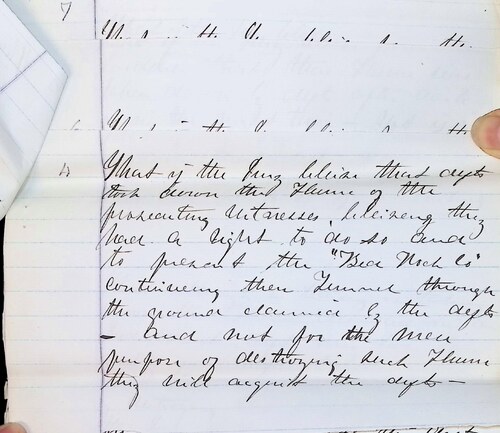 7
4 That if the Jury believe that defts
took down the Flume of the
prosecuting witnesses, believing they
had a right to do so and
to prevent the "Bed Rock Co"
continuing their Tunnel through
the ground claimed by the defts
— and not for the mere
purpose of destroying such Flume
they will acquit the defts —